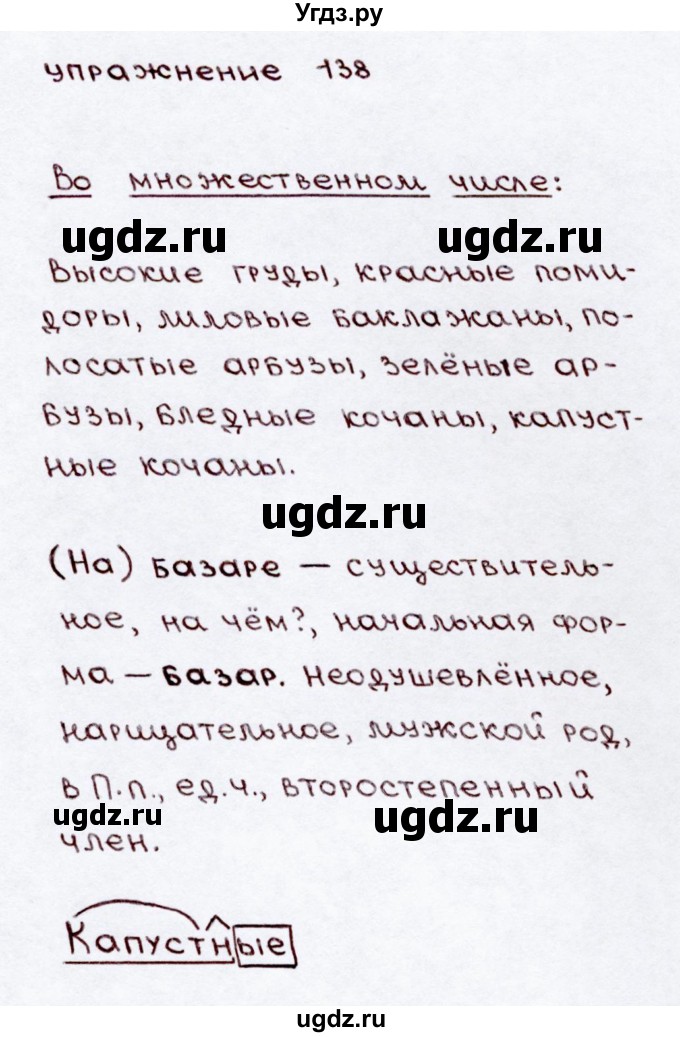 Угдз.ру
упражнение 138
Во множественном числе:
ugdz.ru ugdz.ru
Высокие груды, красные поми-
доры, лиловые баклажаны, по-
лосатые арбузы, зелёные ар-
бузы, бледные кочаны, капуст-
ные кочаны.
ugdz.ru
(На) базаре — существитель-
ное, на чём?, начальная фор-
ма — базар. Неодушевлённое,
нарицательное, мужской род,
в П.п., ед.ч., второстепенный
ugdz.ru ugdz.ru
член.
Капустные
ugdz.ru